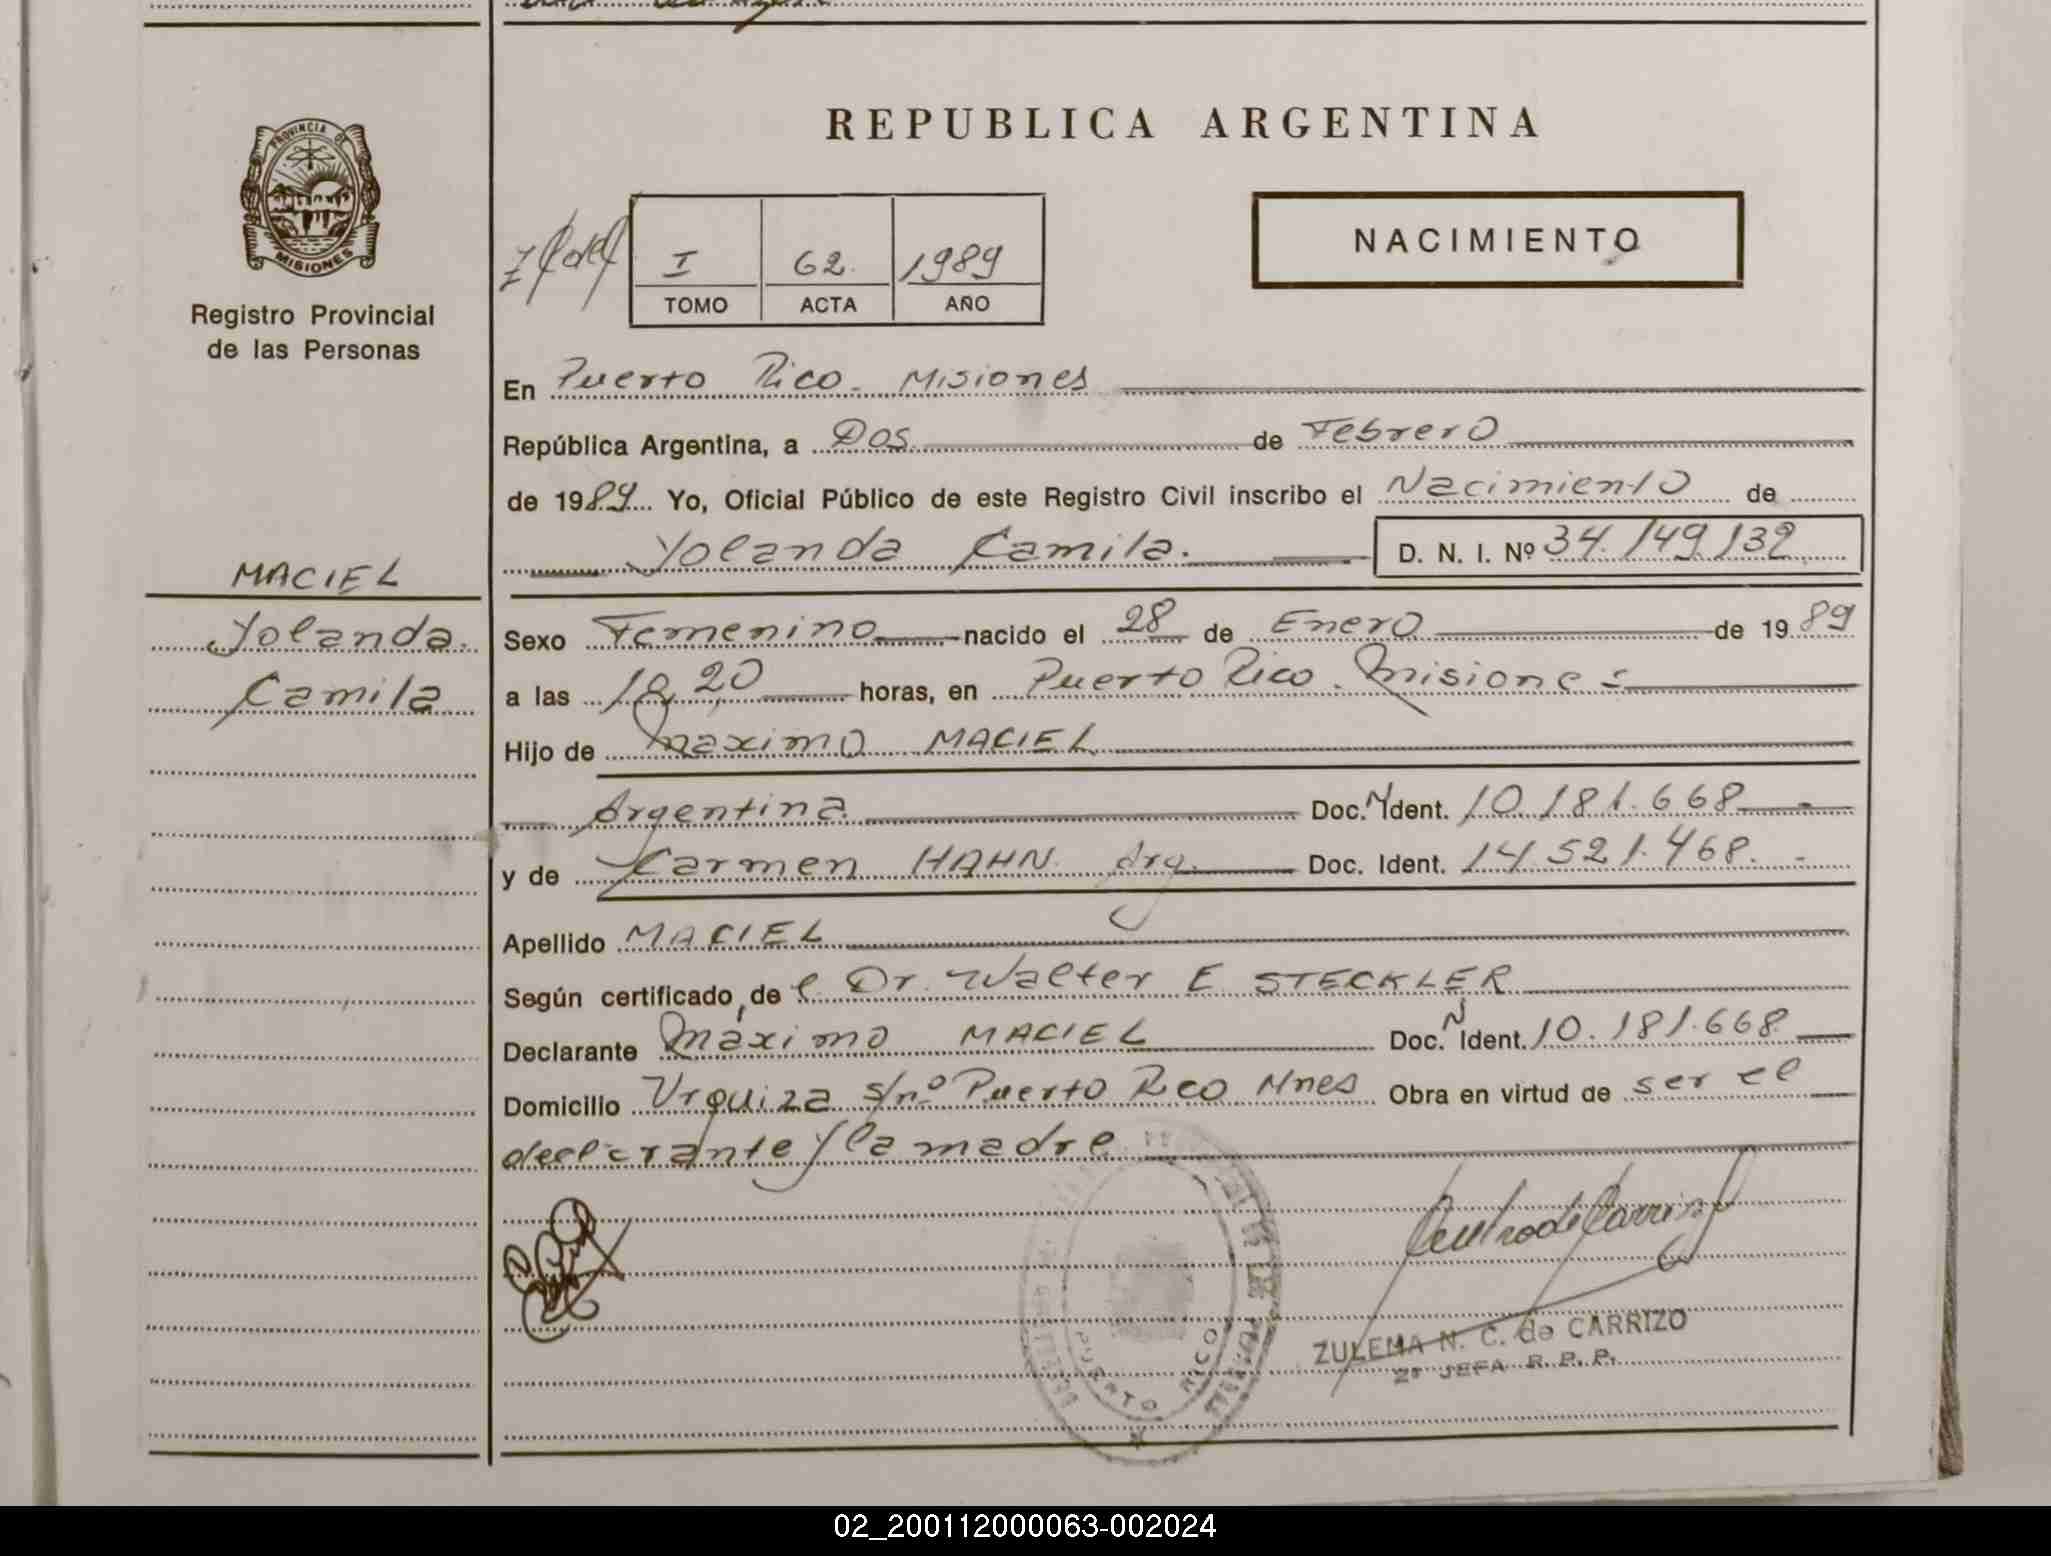 PROVINCIA DE
MISIONES
Registro Provincial
de las Personas
MACIEL
Yolanda
Camila
REPUBLICA ARGENTINA
I 62 1989
TOMO ACTA AÑO
NACIMIENTO
En Puerto Rico. Misiones
República Argentina, a Dos de Febrero
de 1989 Yo, Oficial Público de este Registro Civil inscribo el Nacimiento de
Yolanda Camila. D. N. I. Nº 34.149.132
Sexo Femenino nacido el 28 de Enero de 1989
a las 18,20 horas, en Puerto Rico. Misiones
Hijo de Maximo MACIEL
Argentina Doc. N Ident. 10.181.668
y de Carmen HAHN Arg. Doc. Ident. 14.521.468.
Apellido MACIEL
Según certificado de l Dr. Walter E STECKLER
Declarante Máximo MACIEL Doc. N Ident. 10.181.668
Domicilio Urquiza s/nº Puerto Rico Mnes Obra en virtud de ser el
declarante y la madre
PUERTO RICO
ZULEMA N. C. de CARRIZO
2ª JEFA R. P. P.
02_200112000063-002024